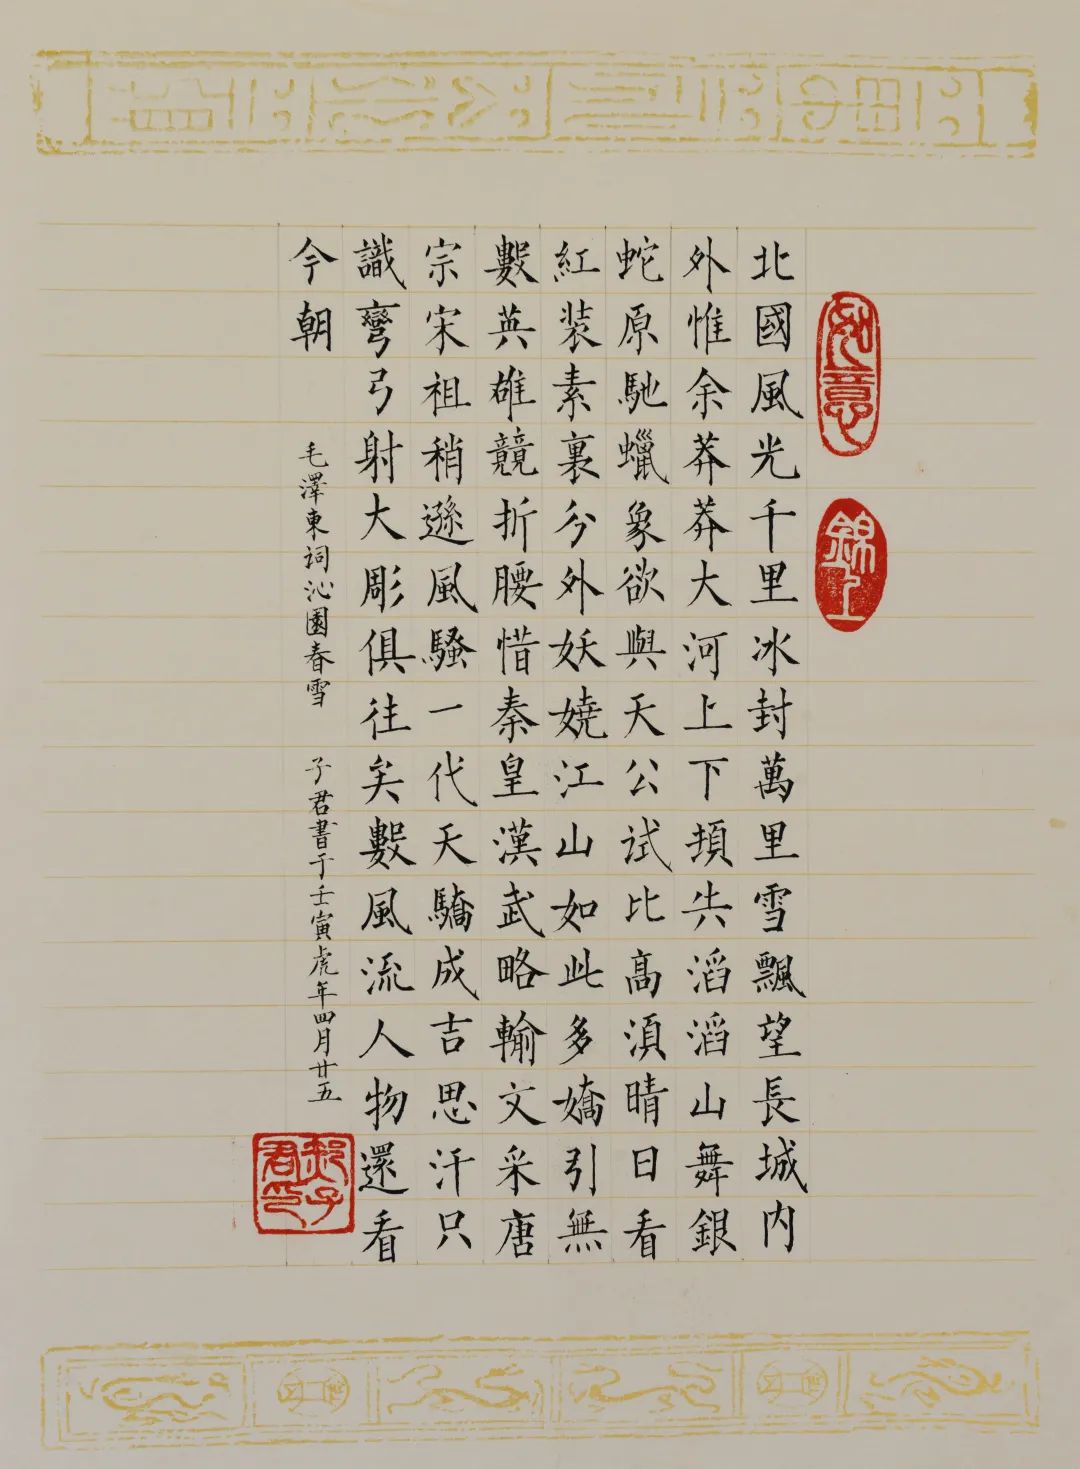 如意
錦上
北國風光千里冰封萬里雪飄望長城内
外惟余莽莽大河上下頓失滔滔山舞銀
蛇原馳蠟象欲與天公試比髙須晴日看
紅装素裹分外妖嬈江山如此多嬌引無
數英雄競折腰惜秦皇漢武略輸文采唐
宗宋祖稍遜風騷一代天驕成吉思汗只
識彎弓射大彫俱往矣數風流人物還看
今朝
毛澤東詞沁園春雪 子君書于壬寅虎年四月廿五